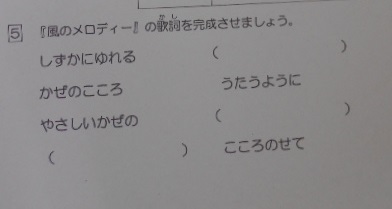 5 『風のメロディー』の歌詞を完成させましょう。
かし
しずかにゆれる (　　　　　)
かぜのこころ うたうように
やさしいかぜの (　　　　　)
(　　　　　) こころのせて